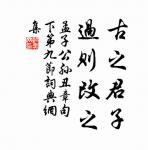 古之君子
過則改之
孟子公孫丑章句
下第九節詞典網
集